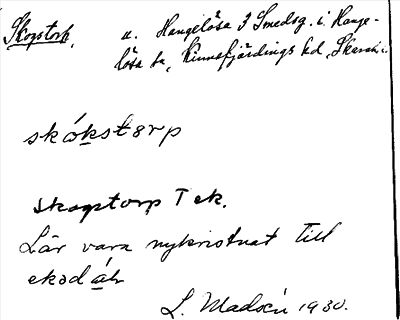 Skogstorp. u. Hangelösa 3 Smedsg. i Hange-
lösa sn, Kinnefjärdings hd, Skarab. l.
skókstorp
Skogstorp T ek.
Lär vara nykristnat till
L. Madsén 1930.